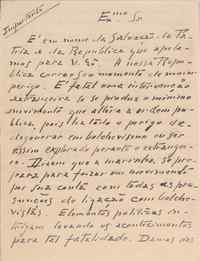 Importante
Exmo Sr
E' em nome da Salvação da Pa-
tria e da Republica que apela-
mos para V. Exª. A nossa Repu-
blica corre gora momento de maior
perigo. E' fatal uma intervenção
extrangeira se se produz o minimo
movimento que altere a ordem publi-
ca, pois há todo o perigo de
degenerar em bolchevismo ou ser
assim explorado perante o extrangei-
ro. Dizem que a marinha se pre-
para para fazer um movimento
por sua conta com todas as pre-
sunções de ligação com bolche-
vistas. Elementos politicos ins-
tigam levando os acontecimentos
para tal fatalidade. Demos nos